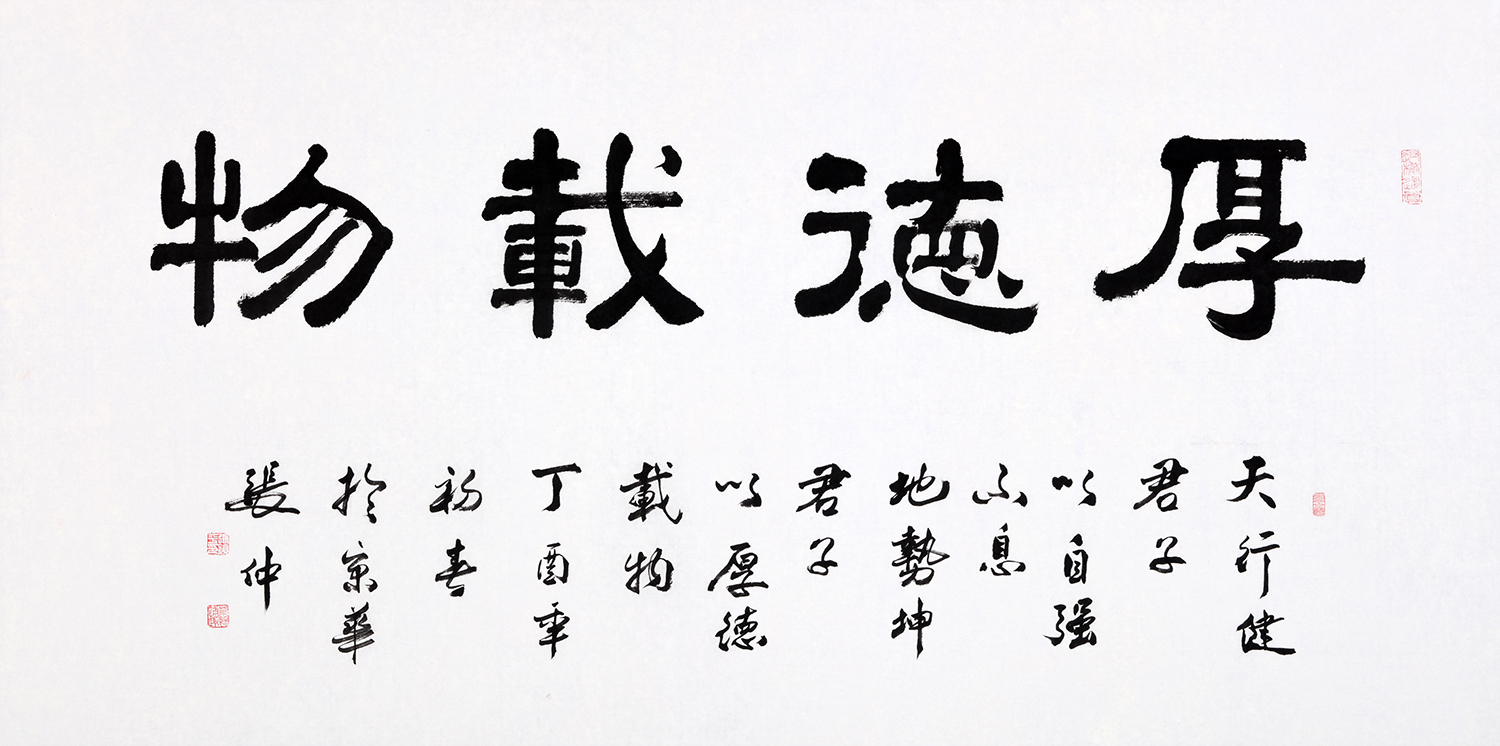 厚德載物
天行健
君子
以自强
不息
地勢坤
君子
以厚德
載物
丁酉年
初春
於京華
張仲